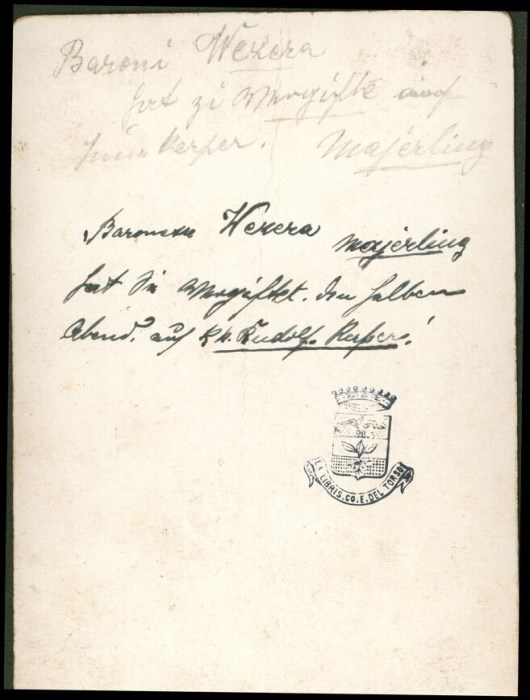 Baroni Wezera
hat zi Wergifte auf
Kerper. Majerling
Baronesse Wezera Majerling
hat Sie Wergiftet. den selben
Abend. auf Rudolfs Kerper!
EX LIBRIS. CO. E. DEL TORSO